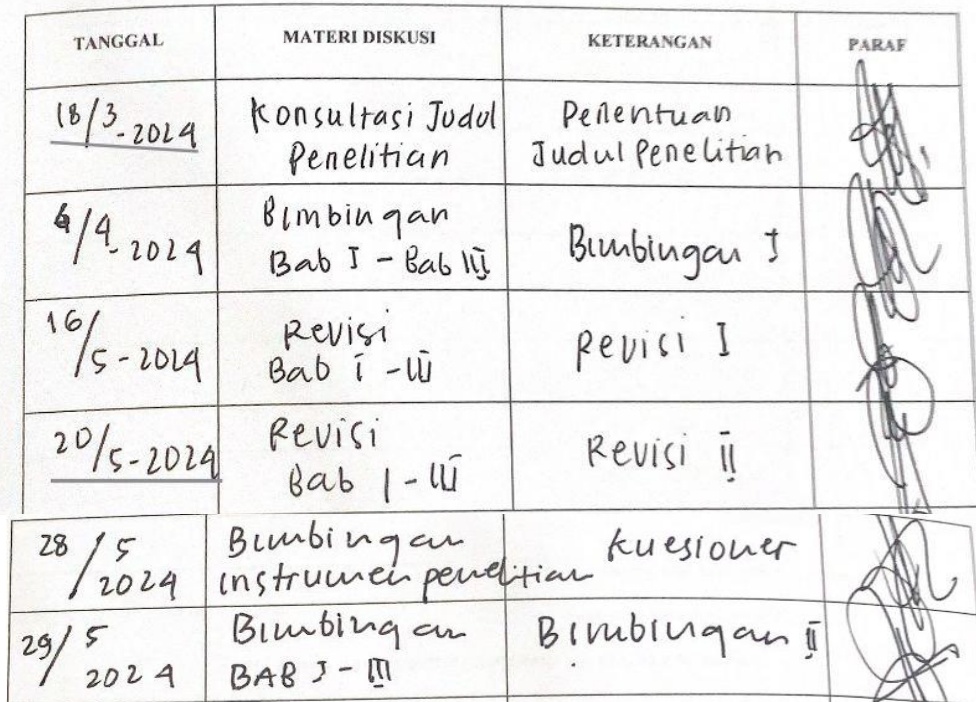 TANGGAL MATERI DISKUSI KETERANGAN PARAF
18/3-2024 Konsultasi Judul Penelitian Penentuan Judul Penelitian
4/4-2024 Bimbingan Bab I - Bab III Bimbingan I
16/5-2024 Revisi Bab I - III Revisi I
20/5-2024 Revisi Bab I - III Revisi II
28/5 2024 Bimbingan instrumen penelitian Kuesioner
29/5 2024 Bimbingan BAB I - III Bimbingan II